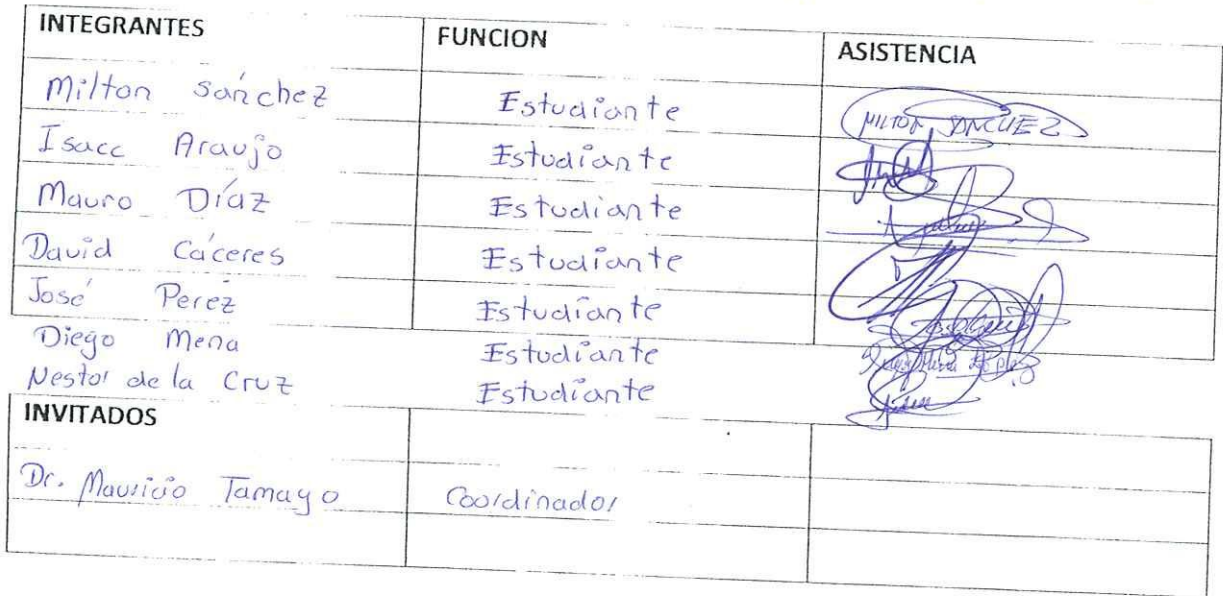 INTEGRANTES FUNCION ASISTENCIA
Milton Sánchez Estudiante MILTON SANCHEZ
Isacc Araujo Estudiante
Mauro Díaz Estudiante
David Cáceres Estudiante
José Perez Estudiante
Diego Mena Estudiante
Nestor de la Cruz Estudiante
INVITADOS
Dr. Mauricio Tamayo Coordinador